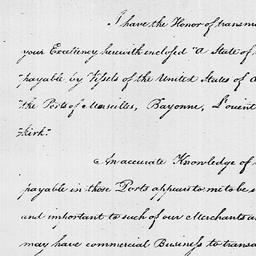 I have the Honor of transm
your Excellency herewith enclosed "a State of
"payable by Vessels of the United States of A
"the Ports of Marseilles, Bayonne, L'orient
"kirk."
An accurate Knowledge of
payable in those Ports appears to me to be
and important to such of our Merchants a
may have commercial Business to transa